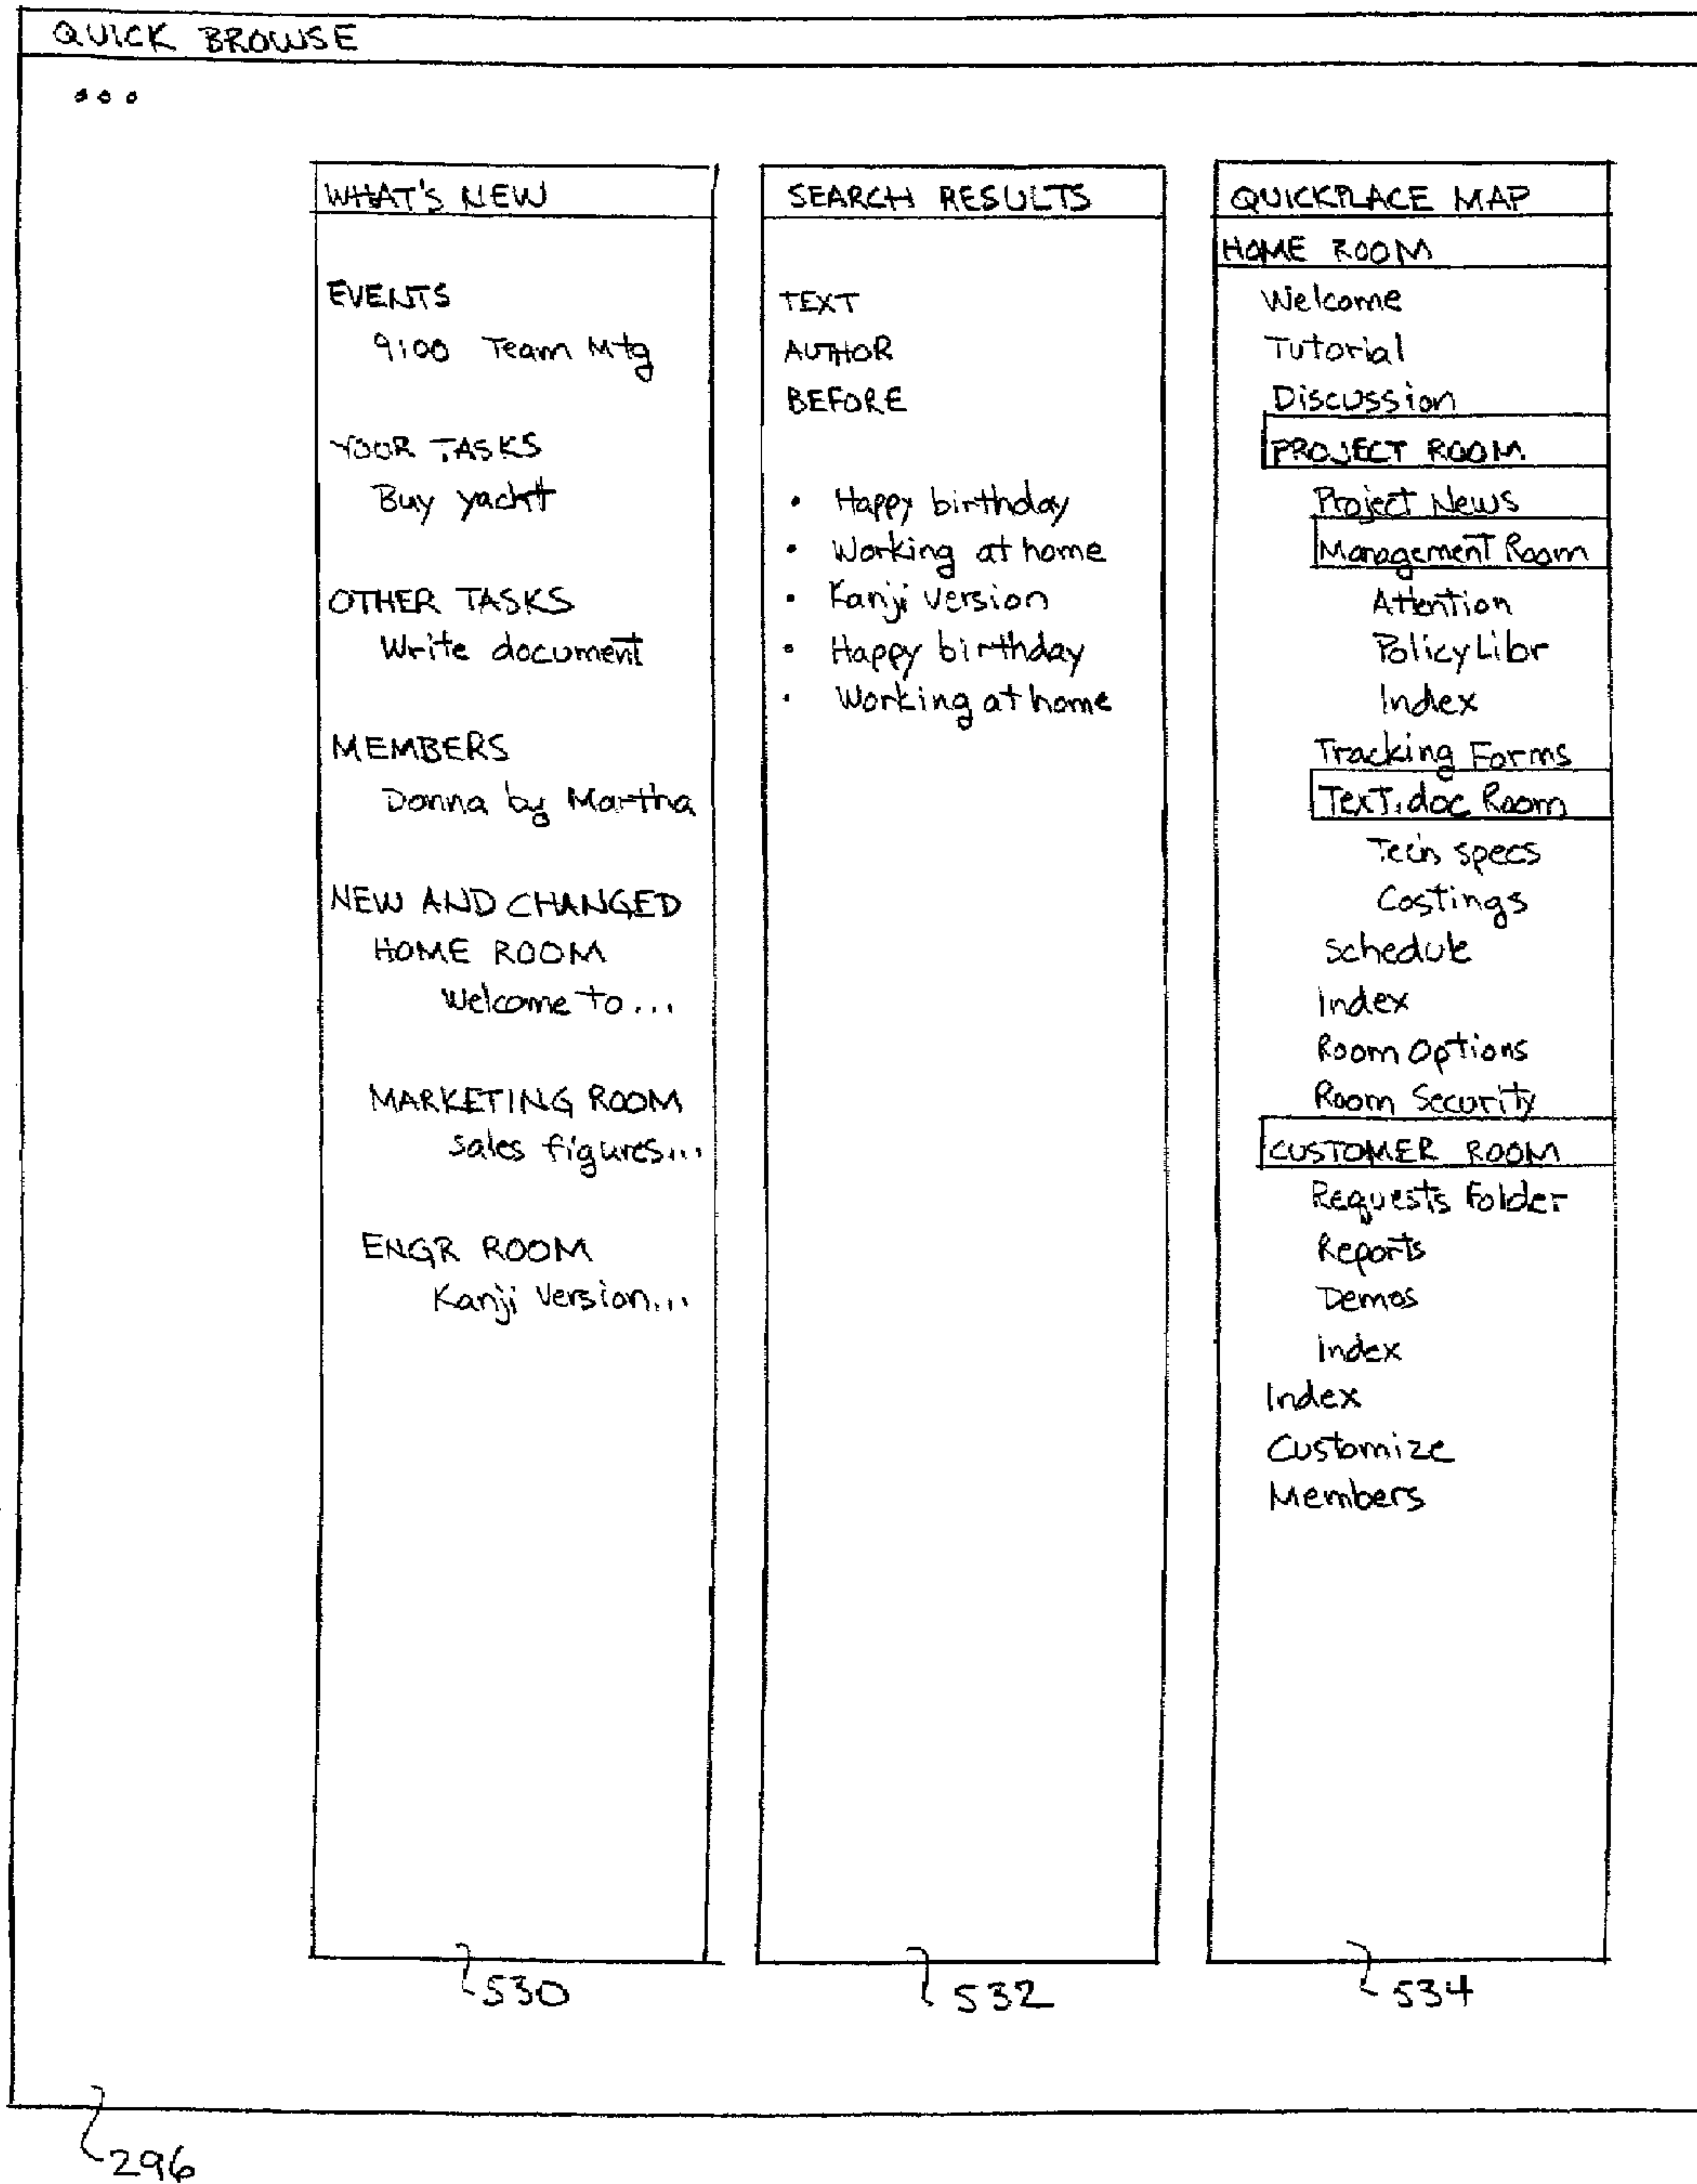 QUICK BROWSE
...
WHAT'S NEW
EVENTS
9:00 Team Mtg
YOUR TASKS
Buy yacht
OTHER TASKS
Write document
MEMBERS
Donna by Martha
NEW AND CHANGED
HOME ROOM
Welcome to...
MARKETING ROOM
Sales figures...
ENGR ROOM
Kanji Version...
530
SEARCH RESULTS
TEXT
AUTHOR
BEFORE
• Happy birthday
• Working at home
• Kanji version
• Happy birthday
• Working at home
532
QUICKPLACE MAP
HOME ROOM
Welcome
Tutorial
Discussion
PROJECT ROOM
Project News
Management Room
Attention
Policy Libr
Index
Tracking Forms
Text.doc Room
Tech specs
Costings
Schedule
Index
Room Options
Room Security
CUSTOMER ROOM
Requests Folder
Reports
Demos
Index
Index
Customize
Members
534
296